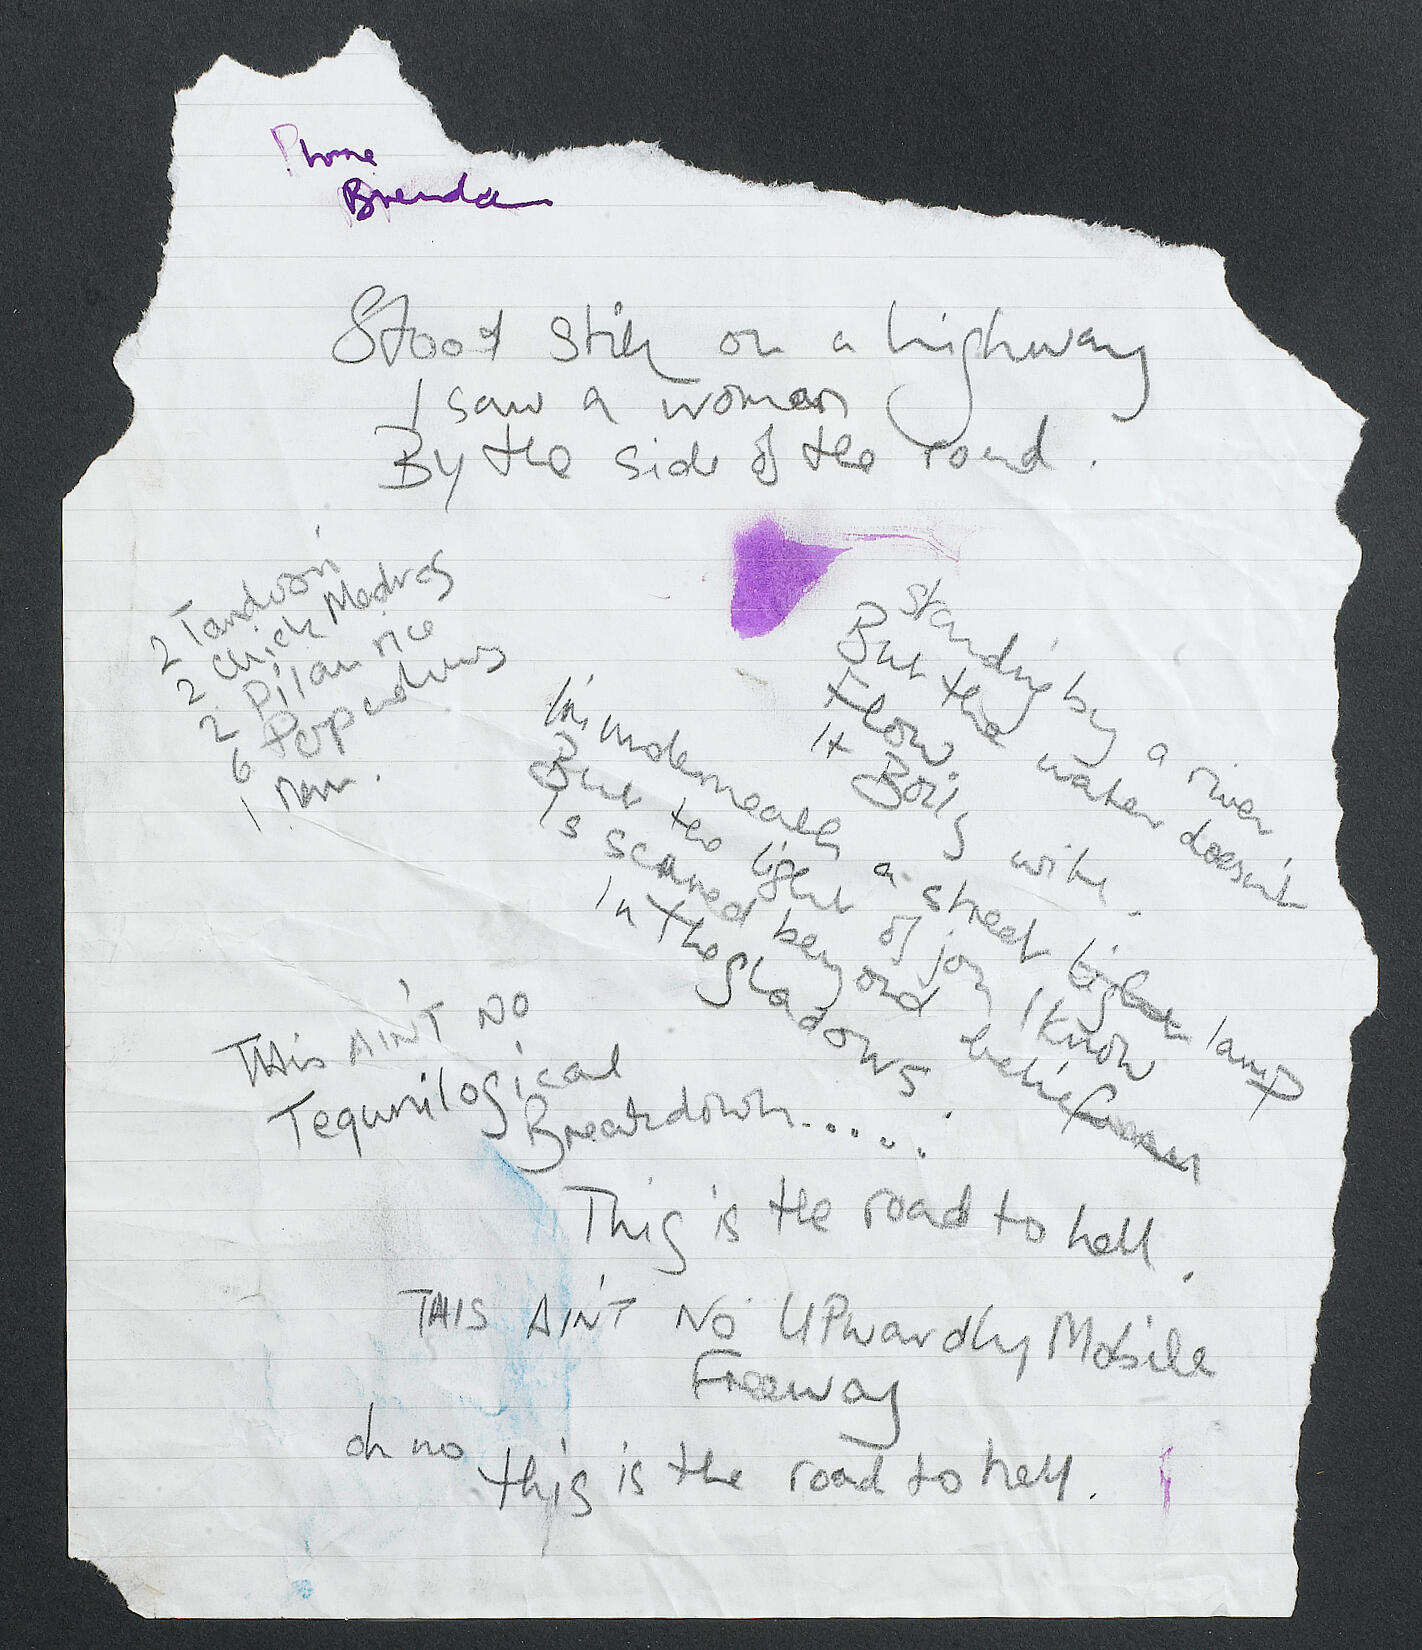 Phone
Brenda
Stood still on a highway
I saw a woman
By the side of the road.
2 Tandoori
2 chick Madras
2 Pilau rice
6 Popadums
1 Nan.
Standing by a river
But the water doesn't
Flow.
It Boils with.
I'm underneath a street light lamp
But the light of joy I know
Is scared beyond belief
In the shadows.
THis AiN'T NO
Tequnilogical
Breakdown.....
This is the road to hell.
THIS AIN'T NO UPwardly Mobile
Freeway
oh no
this is the road to hell.